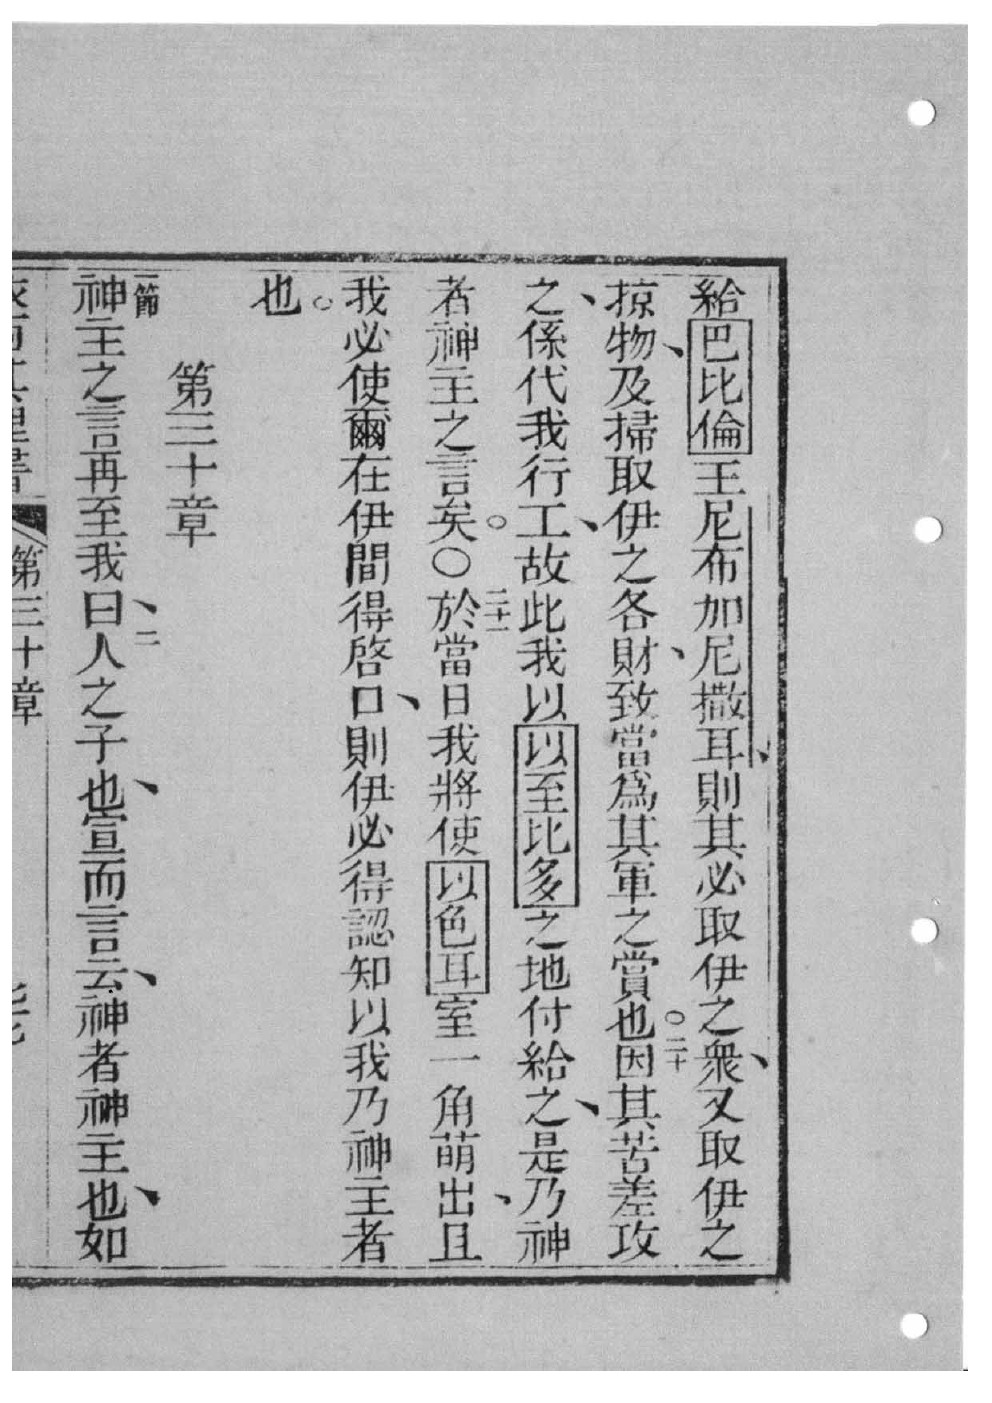 給巴比倫王尼布加尼撒耳則其必取伊之衆、又取伊之
掠物、及掃取伊之各財、致當爲其軍之賞也。二十因其苦差攻
之、係代我行工、故此我以以至比多之地付給之、是乃神
者神主之言矣。〇二十一於當日我將使以色耳室一角萌出、且
我必使爾在伊間得啓口、則伊必得認知以我乃神主者
也。
第三十章
一節神主之言再至我曰、二人之子也、宣而言云、神者神主也、如
第三十章